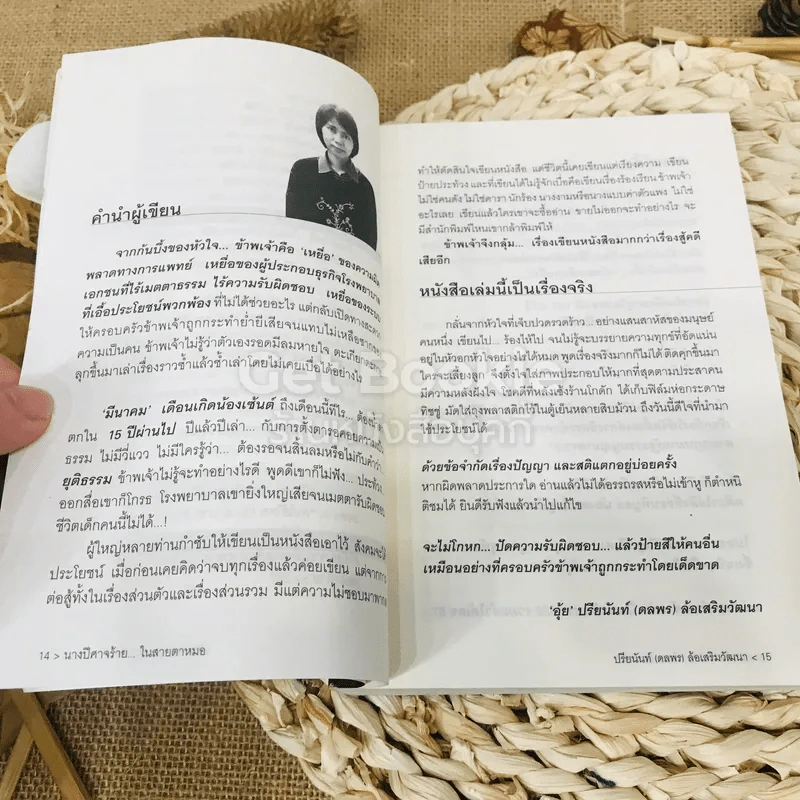 คำนำผู้เขียน
จากก้นบึ้งของหัวใจ... ข้าพเจ้าคือ 'เหยื่อ' ของความผิด
พลาดทางการแพทย์ เหยื่อของผู้ประกอบธุรกิจโรงพยาบาล
เอกชนที่ไร้เมตตาธรรม ไร้ความรับผิดชอบ เหยื่อของระบบ
ที่เอื้อประโยชน์พวกพ้อง ที่ไม่ได้ช่วยอะไร แต่กลับเปิดทางสะดวก
ให้ครอบครัวข้าพเจ้าถูกกระทำย่ำยีเสียจนแทบไม่เหลือซากของ
ความเป็นคน ข้าพเจ้าไม่รู้ว่าตัวเองรอดมีลมหายใจ ตะเกียกตะกาย
ลุกขึ้นมาเล่าเรื่องราวซ้ำแล้วซ้ำเล่าโดยไม่เคยเบื่อได้อย่างไร
'มีนาคม' เดือนเกิดน้องเซ้นต์ ถึงเดือนนี้ทีไร... ต้องน้ำตา
ตกใน 15 ปีผ่านไป ปีแล้วปีเล่า... กับการตั้งตารอคอยความเป็น
ธรรม ไม่มีวี่แวว ไม่มีใครรู้ว่า... ต้องรอจนสิ้นลมหรือไม่กับคำว่า
ยุติธรรม ข้าพเจ้าไม่รู้จะทำอย่างไรดี พูดดีเขาก็ไม่ฟัง... ประท้วง
ออกสื่อเขาก็โกรธ โรงพยาบาลเขายิ่งใหญ่เสียจนเมตตารับผิดชอบ
ชีวิตเด็กคนนี้ไม่ได้...!
ผู้ใหญ่หลายท่านกำชับให้เขียนเป็นหนังสือเอาไว้ สังคมจะได้
ประโยชน์ เมื่อก่อนเคยคิดว่าจบทุกเรื่องแล้วค่อยเขียน แต่จากการ
ต่อสู้ทั้งในเรื่องส่วนตัวและเรื่องส่วนรวม มีแต่ความไม่ชอบมาพากล
14 > นางปีศาจร้าย... ในสายตาหมอ
ทำให้ตัดสินใจเขียนหนังสือ แต่ชีวิตนี้เคยเขียนแต่เรียงความ เขียน
ป้ายประท้วง และที่เขียนได้ไม่รู้จักเบื่อคือเขียนเรื่องร้องเรียน ข้าพเจ้า
ไม่ใช่คนดัง ไม่ใช่ดารา นักร้อง นางงามหรือนางแบบค่าตัวแพง ไม่ใช่
อะไรเลย เขียนแล้วใครเขาจะซื้ออ่าน ขายไม่ออกจะทำอย่างไร จะ
มีสำนักพิมพ์ไหนเขากล้าพิมพ์ให้
ข้าพเจ้าจึงกลุ้ม... เรื่องเขียนหนังสือมากกว่าเรื่องสู้คดี
เสียอีก
หนังสือเล่มนี้เป็นเรื่องจริง
กลั่นจากหัวใจที่เจ็บปวดรวดร้าว... อย่างแสนสาหัสของมนุษย์
คนหนึ่ง เขียนไป... ร้องไห้ไป จนไม่รู้จะบรรยายความทุกข์ที่อัดแน่น
อยู่ในหัวอกหัวใจอย่างไรได้หมด พูดเรื่องจริงมากก็ไม่ได้ ติดคุกขึ้นมา
ใครจะเลี้ยงลูก จึงตั้งใจใส่ภาพประกอบให้มากที่สุดตามประสาคน
มีความหลังฝังใจ โชคดีที่หลังเซ้งร้านโกดัก ได้เก็บฟิล์มห่อกระดาษ
ทิชชู่ มัดใส่ถุงพลาสติกไว้ในตู้เย็นหลายสิบม้วน ถึงวันนี้ดีใจที่นำมา
ใช้ประโยชน์ได้
ด้วยข้อจำกัดเรื่องปัญญา และสติแตกอยู่บ่อยครั้ง
หากผิดพลาดประการใด อ่านแล้วไม่ได้อรรถรสหรือไม่เข้าหู ก็ตำหนิ
ติชมได้ ยินดีรับฟังแล้วนำไปแก้ไข
จะไม่โกหก... ปัดความรับผิดชอบ... แล้วป้ายสีให้คนอื่น
เหมือนอย่างที่ครอบครัวข้าพเจ้าถูกกระทำโดยเด็ดขาด
'อุ้ย' ปรียนันท์ (ดลพร) ล้อเสริมวัฒนา
ปรียนันท์ (ดลพร) ล้อเสริมวัฒนา < 15